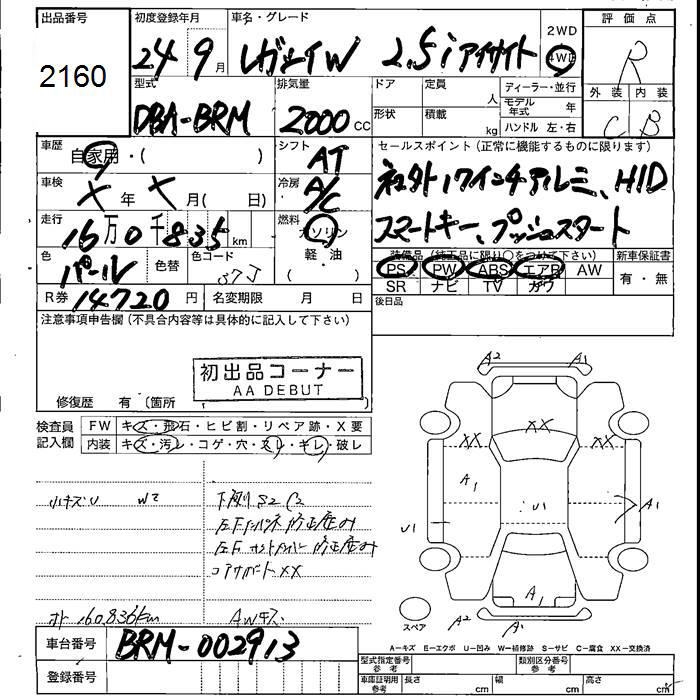 出品番号
2160
初度登録年月
24 9月
車名・グレード
レガシィW 2.5i アイサイト
2WD
4WD
評価点
R
外装 内装
C B
型式
DBA-BRM
排気量
2000 CC
ドア 定員 人
形状 積載 kg
ディーラー・並行
モデル年式 年
ハンドル 左・右
車歴
自家用・( )
シフト
AT
セールスポイント(正常に機能するものに限ります)
社外17インチアルミ、HID
スマートキー、プッシュスタート
車検
X年X月( 日)
冷房
A/C
走行
16万0千835km
燃料
ガソリン
軽・油
・( )
色
パール
色替
色コード
37J
装備品(純正品に限り○をつけて下さい)
PS PW ABS エアB AW
SR ナビ TV ガワ
新車保証書
有・無
R券 14720円
名変期限 月 日
後日品
注意事項申告欄(不具合内容等は具体的に記入して下さい)
初出品コーナー
AA DEBUT
修復歴 有(箇所
検査員記入欄
FW キズ・飛石・ヒビ割・リペア跡・X要
内装 キズ・汚レ・コゲ・穴・スレ・キレ・破レ
小キズU W2
下廻りS2 C2
コアサポートXX
160,836km
AWキズ
A2 A1
XX
XX XX
A1
U1
A1
U1
A1
A2 A1
スペア
A-キズ E-エクボ U-凹み W-補修跡 S-サビ C-腐食 XX-交換済
車台番号
BRM-002913
登録番号
型式指定番号参考
類別区分番号参考
車庫証明用参考
長さ cm 幅 cm 高さ cm